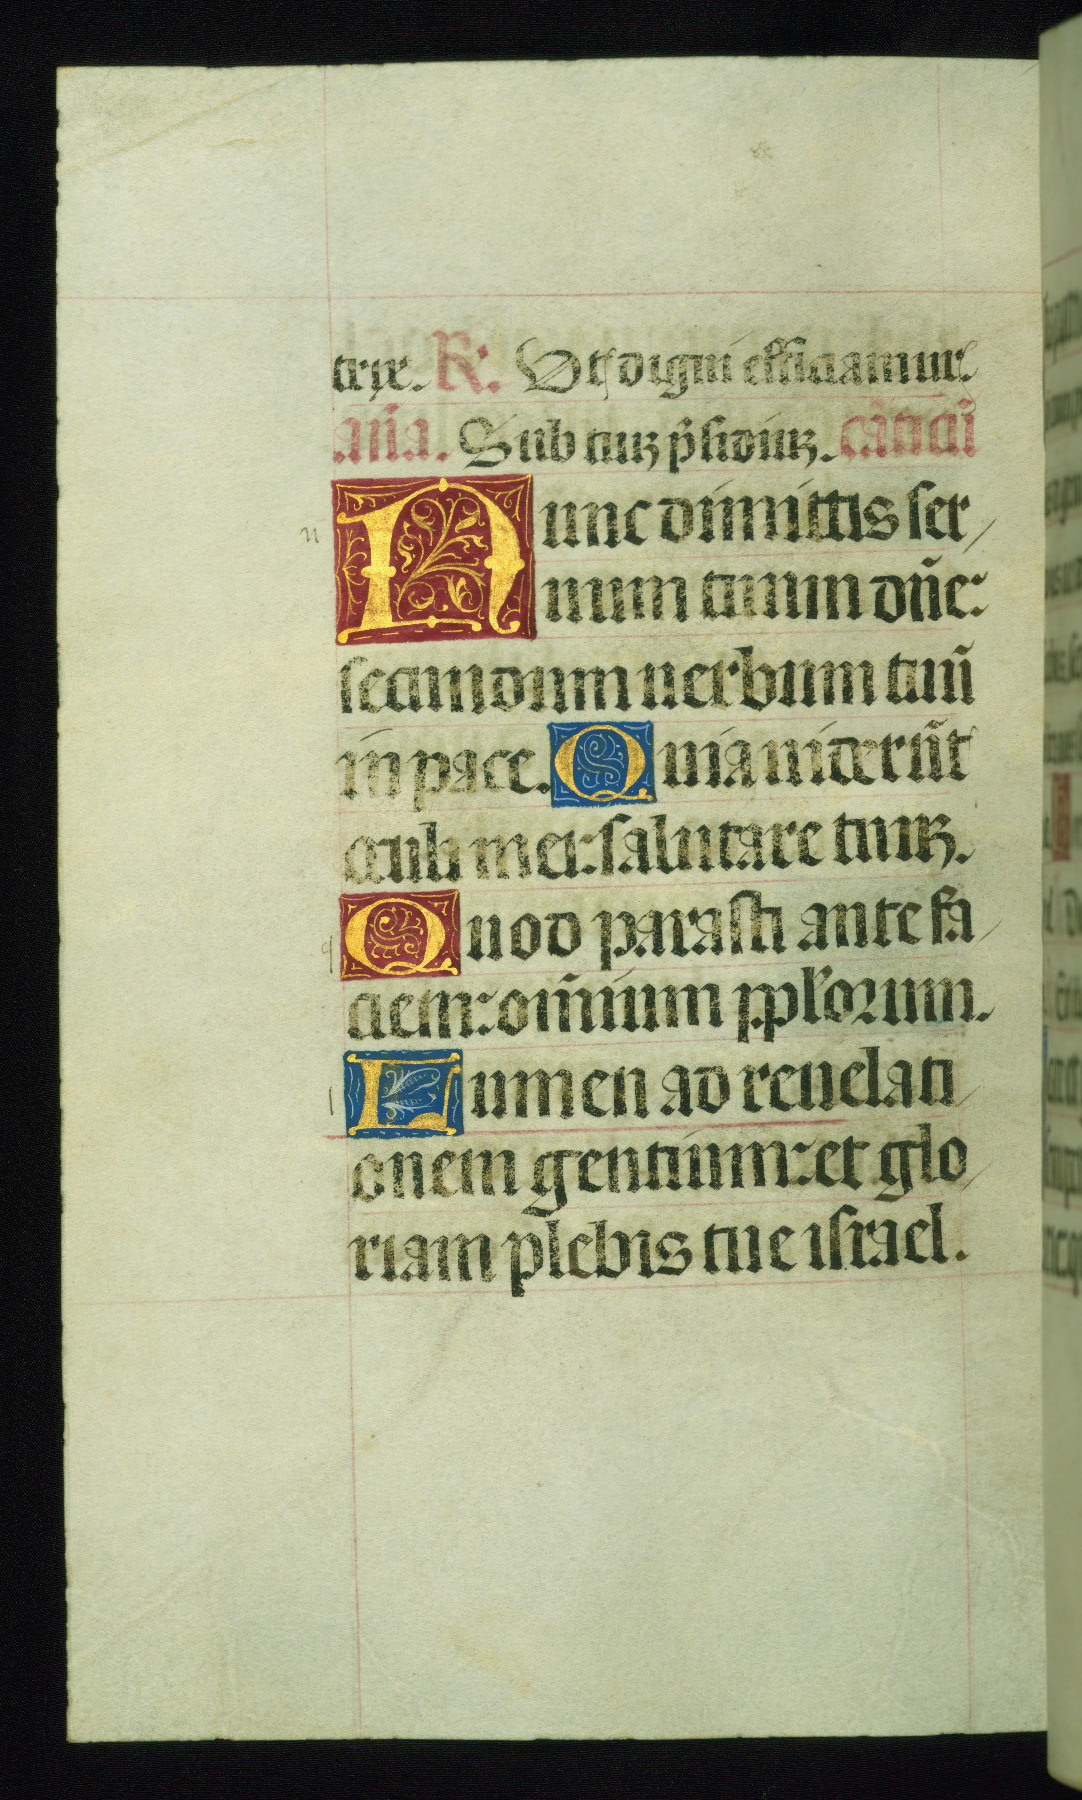 trix. R. Ut digni efficiamur.
an̄a. Sub tuū p̄sidiuꝫ. cāticū
Nunc dimittis ser
uum tuum dn̄e:
secundum uerbum tuū
in pace. Quia uiderūt
oculi mei: salutare tuuꝫ.
Quod parasti ante fa
ciem: om̄nium pp̄lorum.
Lumen ad reuelati
onem gentium: et glo
riam plebis tue israel.